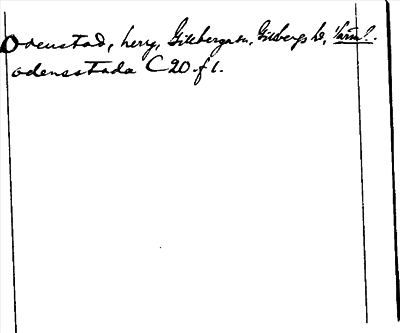 Odenstad, herg, Gillberga sn, Gillbergs hd, Värml.
odensstada C 20 f 1.